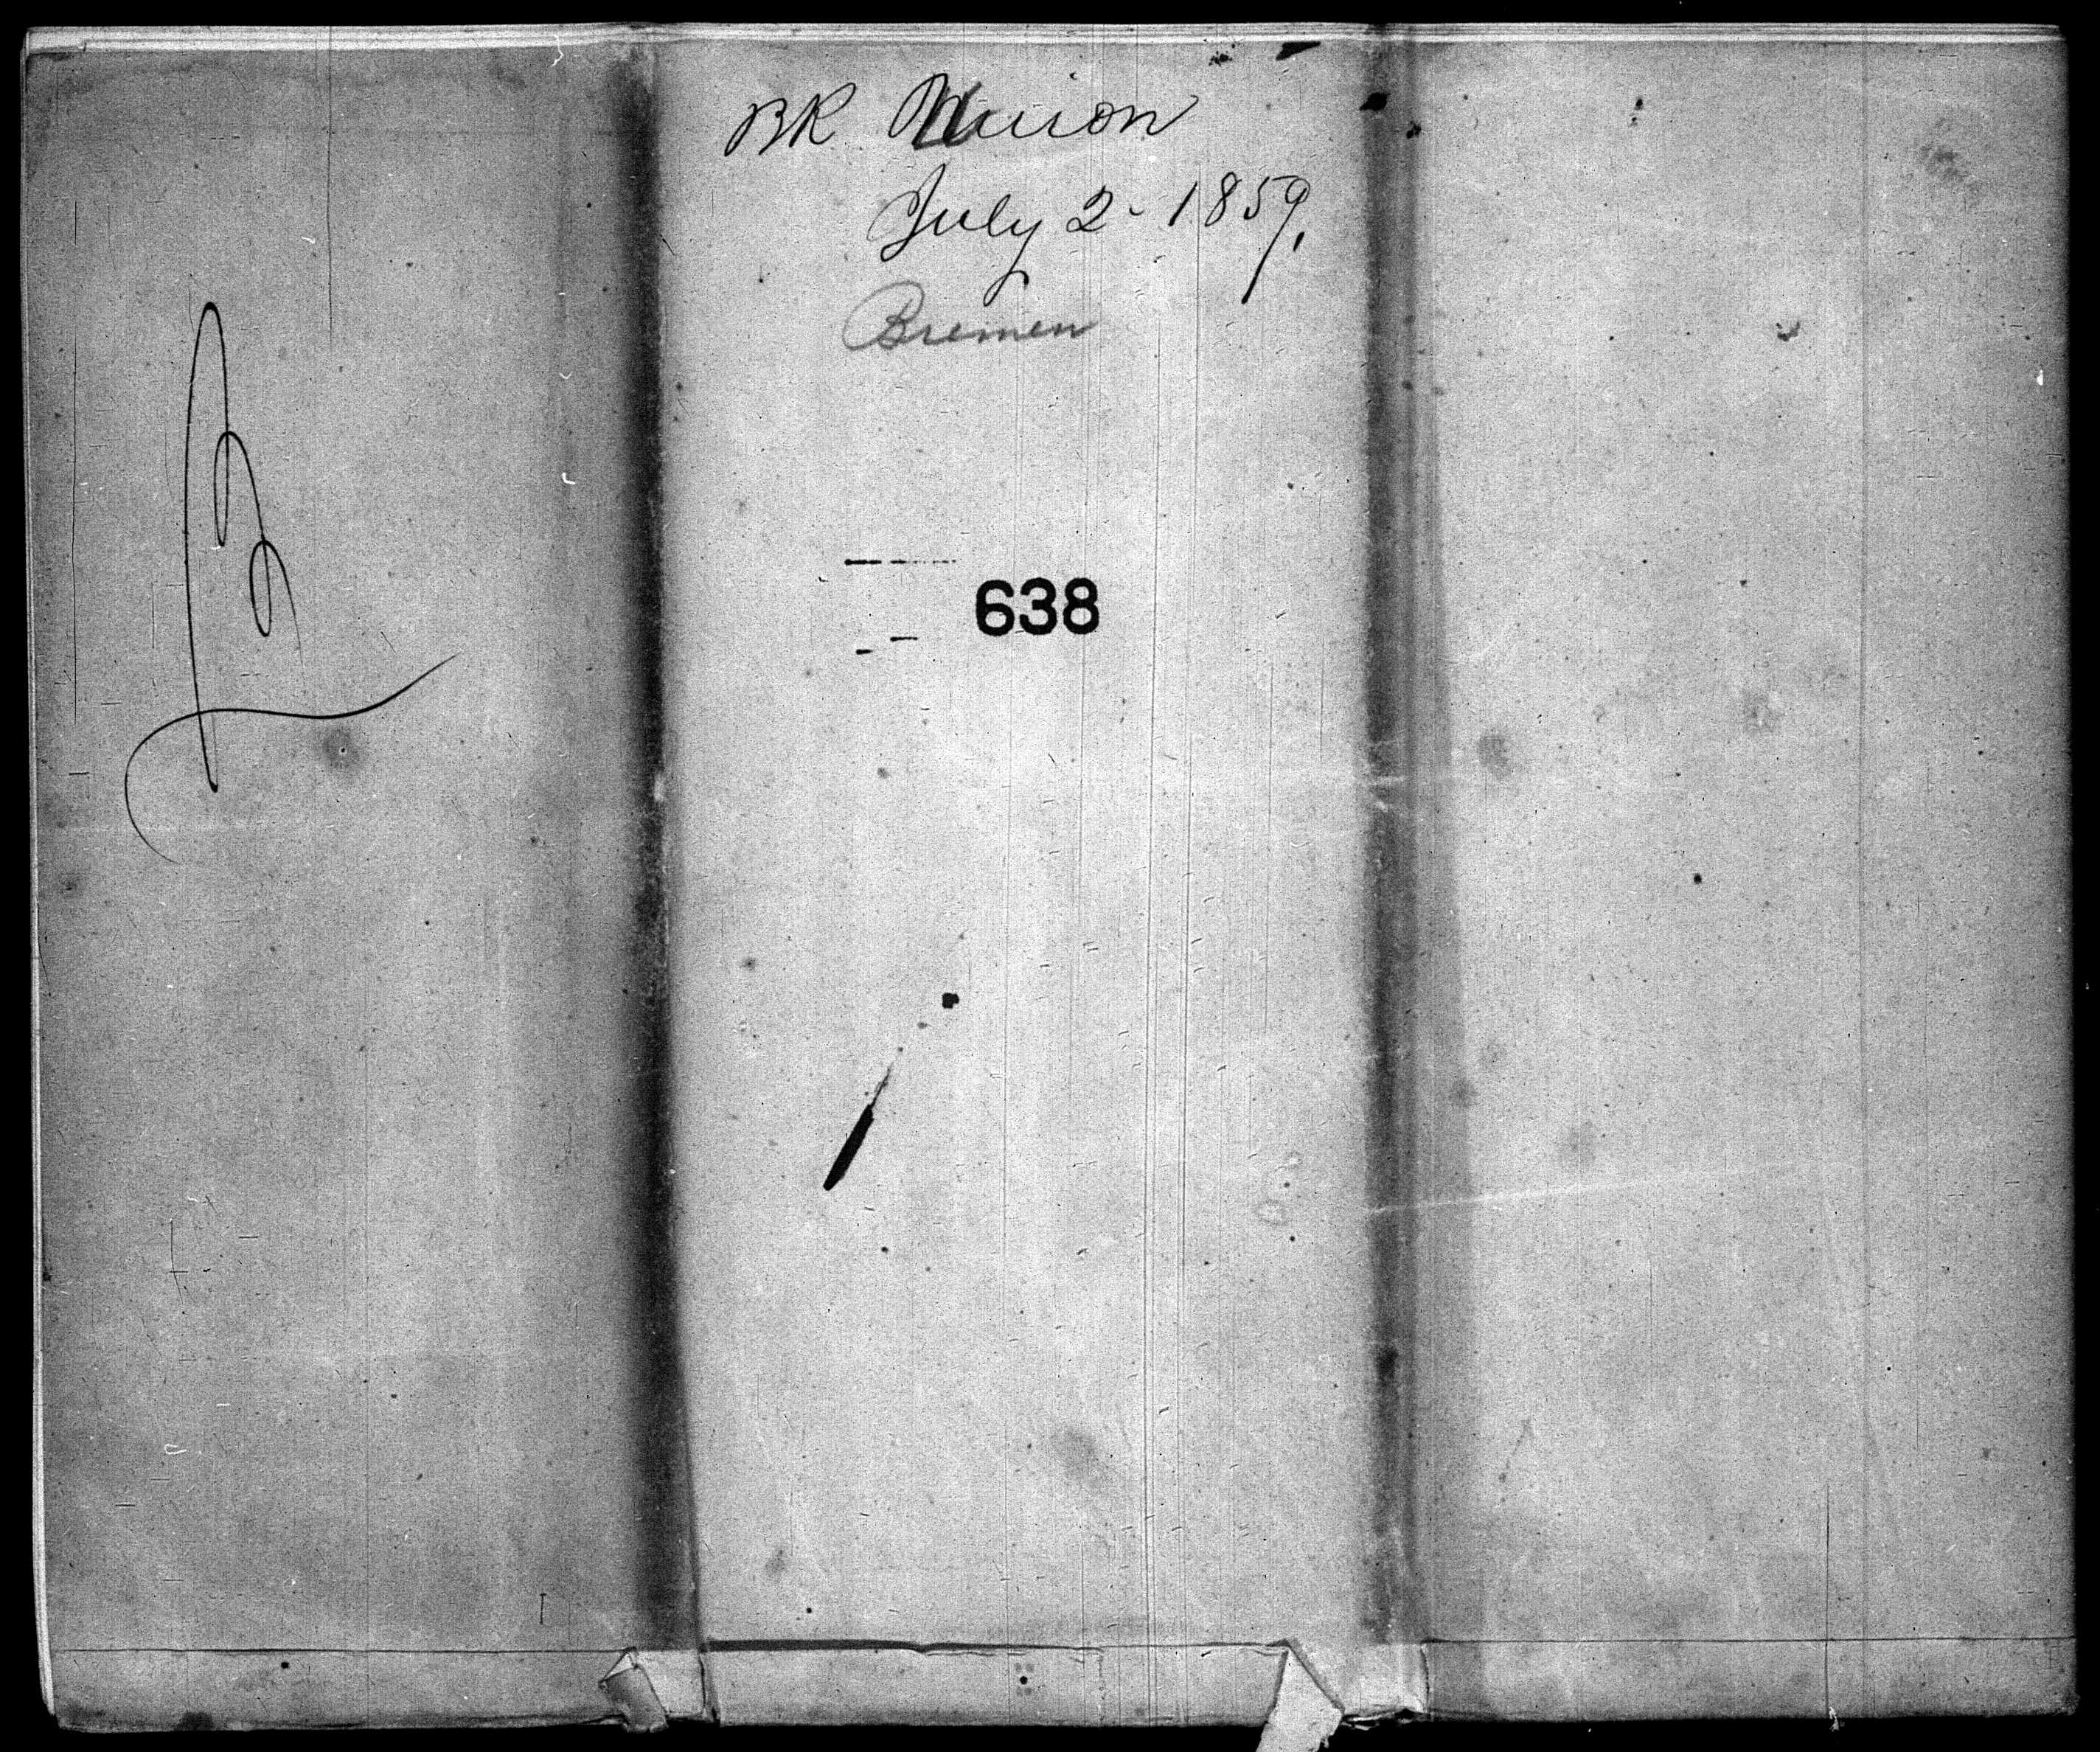 BK
July 2 - 1859.
Bremen
638